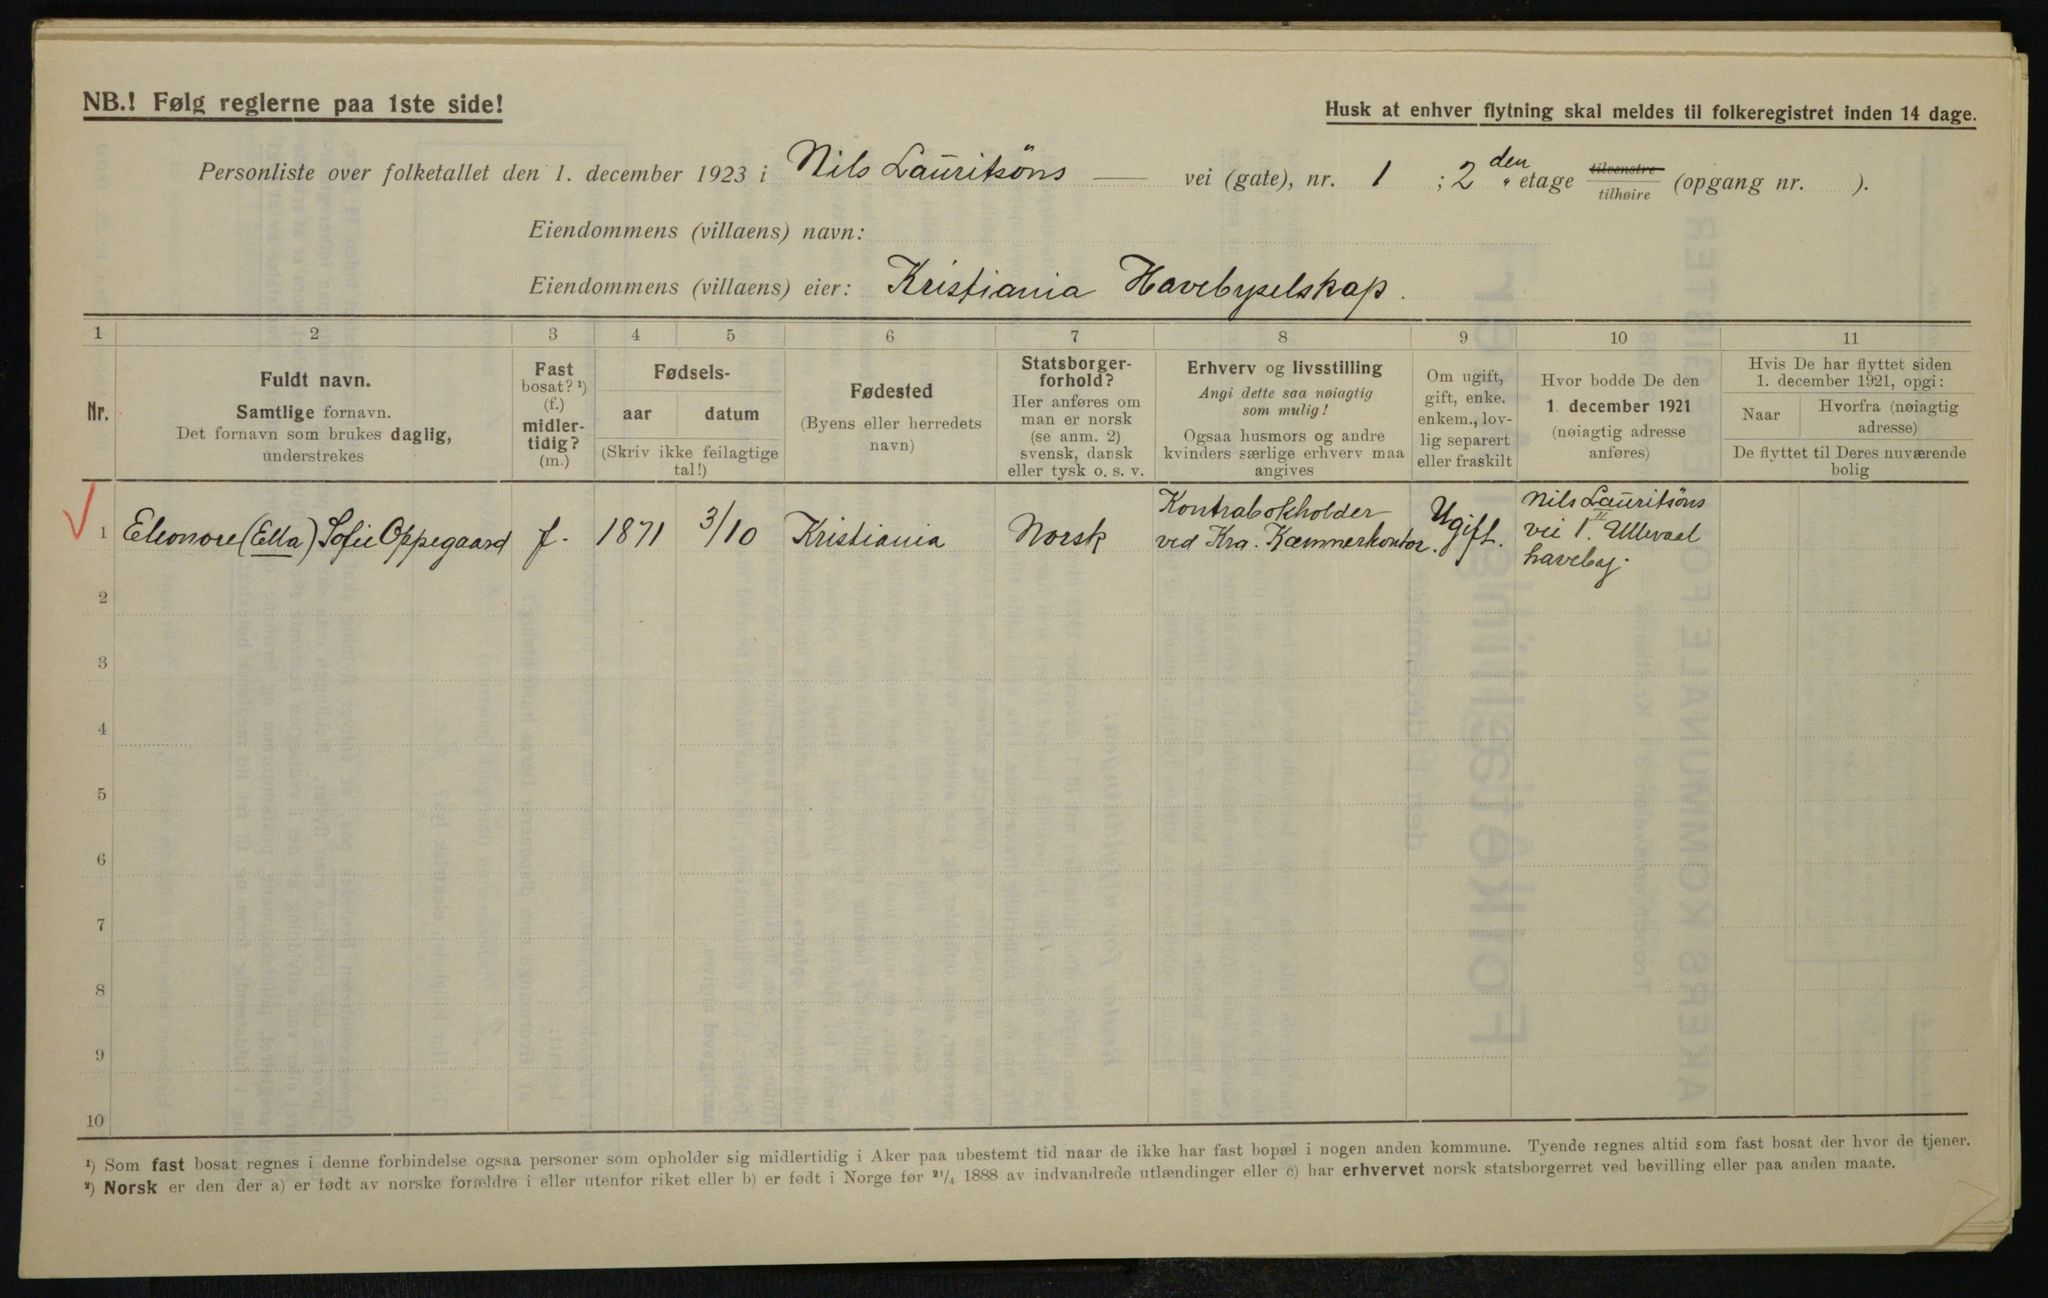 NB.! Følg reglerne paa 1ste side!
Husk at enhver flytning skal meldes til folkeregistret inden 14 dage.
Personliste over folketallet den 1. december 1923 i Nils Lauritsöns — vei (gate), nr. 1 ; 2 den etage tilvenstre tilhøire (opgang nr. ).
Eiendommens (villaens) navn:
Eiendommens (villaens) eier: Kristiania Havebyselskap.
1 2 3 4 5 6 7 8 9 10 11
Nr.
Fuldt navn.
Samtlige fornavn.
Det fornavn som brukes daglig,
understrekes
Fast
bosat? ¹)
(f.)
midler-
tidig?
(m.)
Fødsels-
aar datum
(Skriv ikke feilagtige
tal!)
Fødested
(Byens eller herredets
navn)
Statsborger-
forhold?
Her anføres om
man er norsk
(se anm. 2)
svensk, dansk
eller tysk o. s. v.
Erhverv og livsstilling
Angi dette saa nøiagtig
som mulig!
Ogsaa husmors og andre
kvinders særlige erhverv maa
angives
Om ugift,
gift, enke.
enkem., lov-
lig separert
eller fraskilt
Hvor bodde De den
1 december 1921
(nøiagtig adresse
anføres)
Hvis De har flyttet siden
1. december 1921, opgi:
Naar
Hvorfra (nøiagtig
adresse)
De flyttet til Deres nuværende
bolig
1 Eleonore (Ella) Sofie Oppegaard f. 1871 3/10 Kristiania Norsk
Kontrabokholder
ved Kra. Kæmnerkontor.
Ugift.
Nils Lauritsöns
vei 1 II. Ullevaal
haveby.
2
3
4
5
6
7
8
9
10
¹) Som fast bosat regnes i denne forbindelse ogsaa personer som opholder sig midlertidig i Aker paa ubestemt tid naar de ikke har fast bopæl i nogen anden kommune. Tyende regnes altid som fast bosat der hvor de tjener.
²) Norsk er den der a) er født av norske forældre i eller utenfor riket eller b) er født i Norge før 21/4 1888 av indvandrede utlændinger eller c) har erhvervet norsk statsborgerret ved bevilling eller paa anden maate.